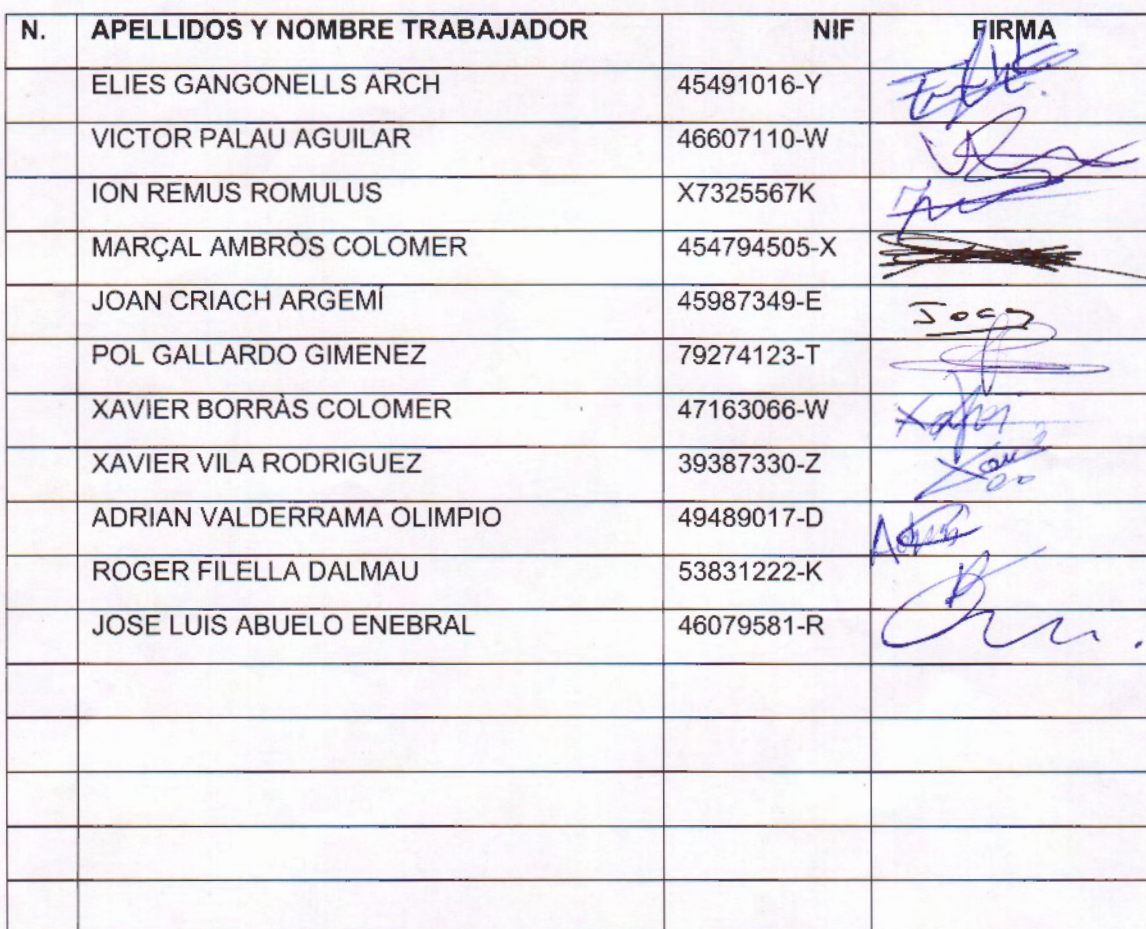 N. APELLIDOS Y NOMBRE TRABAJADOR NIF FIRMA
ELIES GANGONELLS ARCH 45491016-Y
VICTOR PALAU AGUILAR 46607110-W
ION REMUS ROMULUS X7325567K
MARÇAL AMBRÒS COLOMER 454794505-X
JOAN CRIACH ARGEMÍ 45987349-E Joan
POL GALLARDO GIMENEZ 79274123-T
XAVIER BORRÀS COLOMER 47163066-W
XAVIER VILA RODRIGUEZ 39387330-Z
ADRIAN VALDERRAMA OLIMPIO 49489017-D
ROGER FILELLA DALMAU 53831222-K
JOSE LUIS ABUELO ENEBRAL 46079581-R